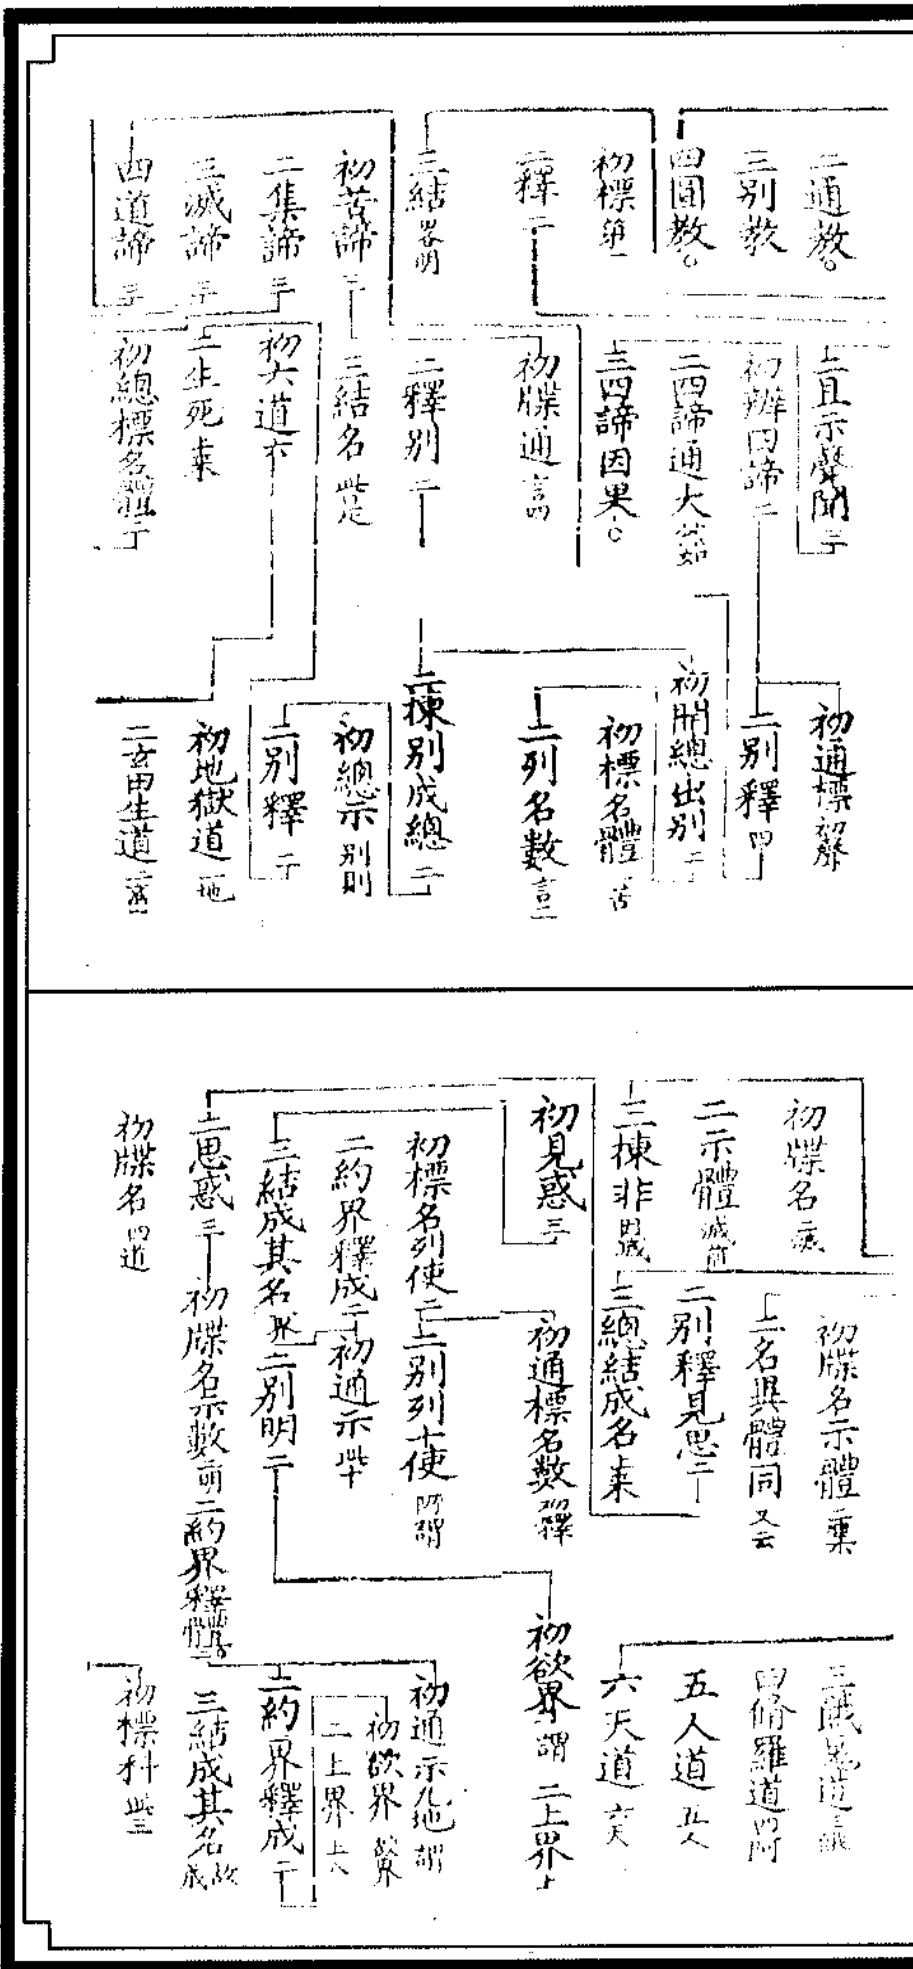 二通教
三別教
四圓教
初標 第一
二釋 二
三結
初苦諦 三
二集諦 三
三滅諦 三
四道諦 三
二且示聲聞 三
初辨四諦 二
二四諦通大
三四諦因果
初牒通
二釋別 二
三結名 此是
初六道 六
二生死
初總標名體 二
初通標
二別釋 四
初開總出別 二
初標名體 苦
二列名數 言二
二揀別成總 二
初總示 別則
二別釋 二
初地獄道 一地
二畜生道
初牒名
二示體 滅前
三揀非
初見惑 三
初標名列使 二
二約界釋成 二
三結成其名
二思惑 三
初牒名
初牒名示體
二名與體同 又云
二別釋見思 二
三總結成名
初通標名數
二別列十使 所謂
初通示 此十
二別明 二
初牒名示數 前
二約界釋體
三餓鬼道 三餓
四脩羅道 四阿
五人道 五人
六天道 六天
初欲界 謂
二上界 上
初通示九地 謂
初欲界
二上界 上八
二約界釋成 二
三結成其名 故成
初標科 此三